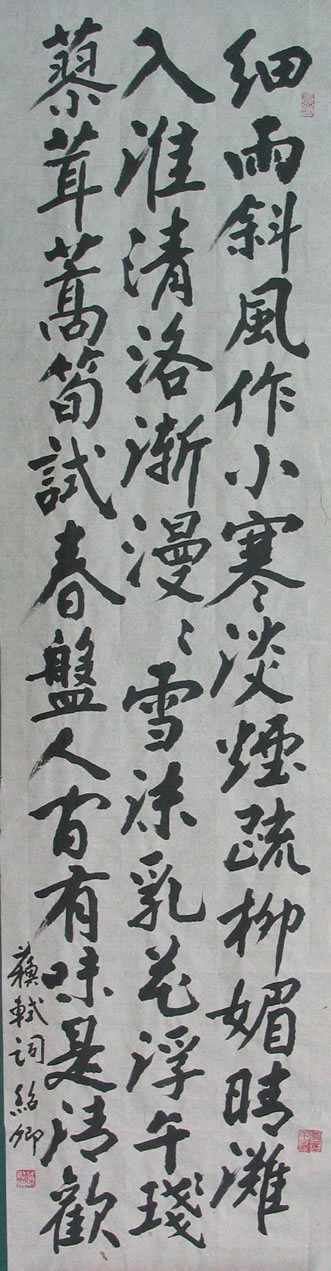 细雨斜風作小寒淡煙疏柳媚晴灘
入淮清洛漸漫漫雪沫乳花浮午琖
蓼茸蒿筍試春盤人间有味是清歡
蘇軾詞 绍卿